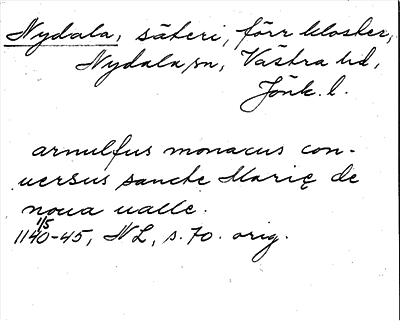 Nydala, säteri, förr kloster,
Nydala sn, Västra hd,
Jönk. l.
arnulfus monacus con-
uersus sancte Marię de
noua ualle.
1/5
1140-45, NL, s. 70. orig.